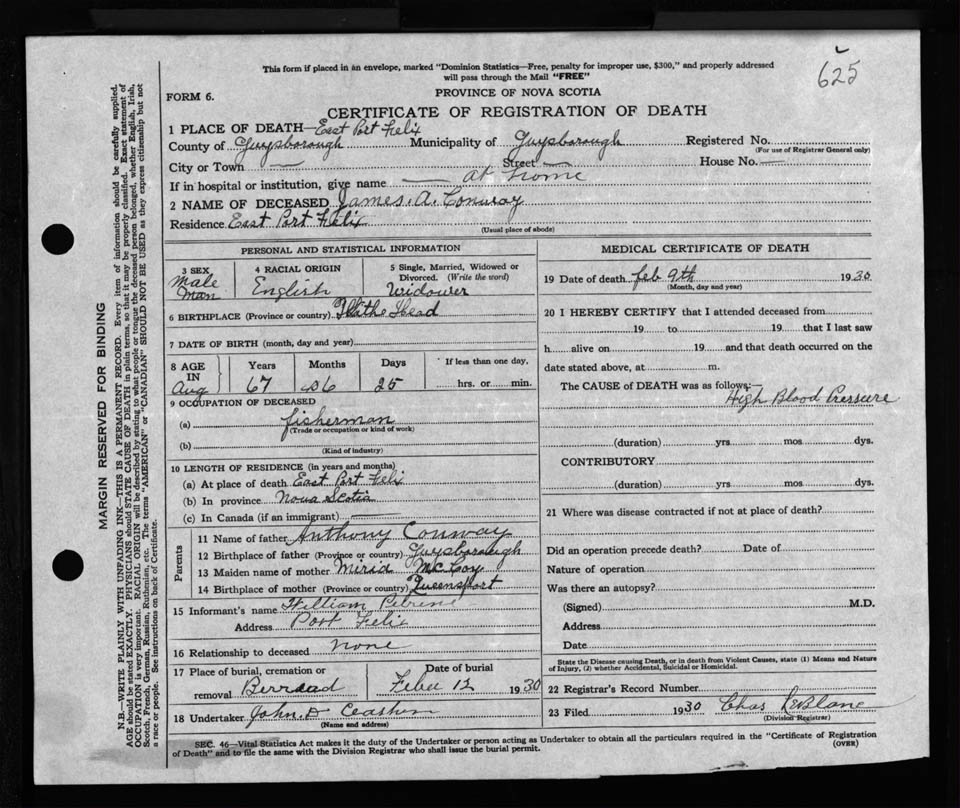 625
This form if placed in an envelope, marked "Dominion Statistics—Free, penalty for improper use, $300," and properly addressed
will pass through the Mail "FREE"
FORM 6.
PROVINCE OF NOVA SCOTIA
CERTIFICATE OF REGISTRATION OF DEATH
1 PLACE OF DEATH—East Port Felix
County of Guysborough Municipality of Guysborough Registered No.
(For use of Registrar General only)
City or Town — Street — House No. —
If in hospital or institution, give name — at home
2 NAME OF DECEASED James. A. Conway
Residence East Port Felix
(Usual place of abode)
PERSONAL AND STATISTICAL INFORMATION
3 SEX 4 RACIAL ORIGIN 5 Single, Married, Widowed or
Divorced. (Write the word)
Male
Man English Widower
6 BIRTHPLACE (Province or country) Head
7 DATE OF BIRTH (month, day and year)
8 AGE IN Years Months Days If less than one day,
Aug 67 06 25 hrs. or min.
9 OCCUPATION OF DECEASED
(a) fisherman
(Trade or occupation or kind of work)
(b)
(Kind of industry)
10 LENGTH OF RESIDENCE (in years and months)
(a) At place of death East Port Felix
(b) In province Nova Scotia
(c) In Canada (if an immigrant) —
Parents
11 Name of father Anthony Conway
12 Birthplace of father (Province or country) Guysborough
13 Maiden name of mother Mirid McCoy
14 Birthplace of mother (Province or country) Queensport
15 Informant's name William
Address Port Felix
16 Relationship to deceased none
17 Place of burial, cremation or
removal Date of burial
Feber 12 1930
18 Undertaker John. D
(Name and address)
MEDICAL CERTIFICATE OF DEATH
19 Date of death feb 9th 1930
(Month, day and year)
20 I HEREBY CERTIFY that I attended deceased from
19 to 19 that I last saw
h alive on 19 and that death occurred on the
date stated above, at m.
The CAUSE of DEATH was as follows:—
High Blood Pressure
(duration) yrs mos dys.
CONTRIBUTORY
(duration) yrs mos dys.
21 Where was disease contracted if not at place of death?
Did an operation precede death? Date of
Nature of operation
Was there an autopsy?
(Signed) M.D.
Address
Date
State the Disease causing Death, or in death from Violent Causes, state (1) Means and Nature
of Injury, (2) whether Accidental, Suicidal or Homicidal.
22 Registrar's Record Number
23 Filed 1930 Chas LeBlanc
(Division Registrar)
SEC. 46—Vital Statistics Act makes it the duty of the Undertaker or person acting as Undertaker to obtain all the particulars required in the "Certificate of Registration
of Death" and to file the same with the Division Registrar who shall issue the burial permit.
(OVER)
MARGIN RESERVED FOR BINDING
N.B.—WRITE PLAINLY WITH UNFADING INK—THIS IS A PERMANENT RECORD. Every item of information should be carefully supplied.
AGE should be stated EXACTLY. PHYSICIANS should STATE CAUSE OF DEATH in plain terms, so that it may be properly classified. Exact statement of
OCCUPATION is very important. RACIAL ORIGIN will be described by stating to what people or tongue the deceased person belonged, whether English, Irish,
Scotch, French, German, Russian, Ruthenian, etc. The terms "AMERICAN" or "CANADIAN" SHOULD NOT BE USED as they express citizenship but not
a race or people. See instructions on back of Certificate.